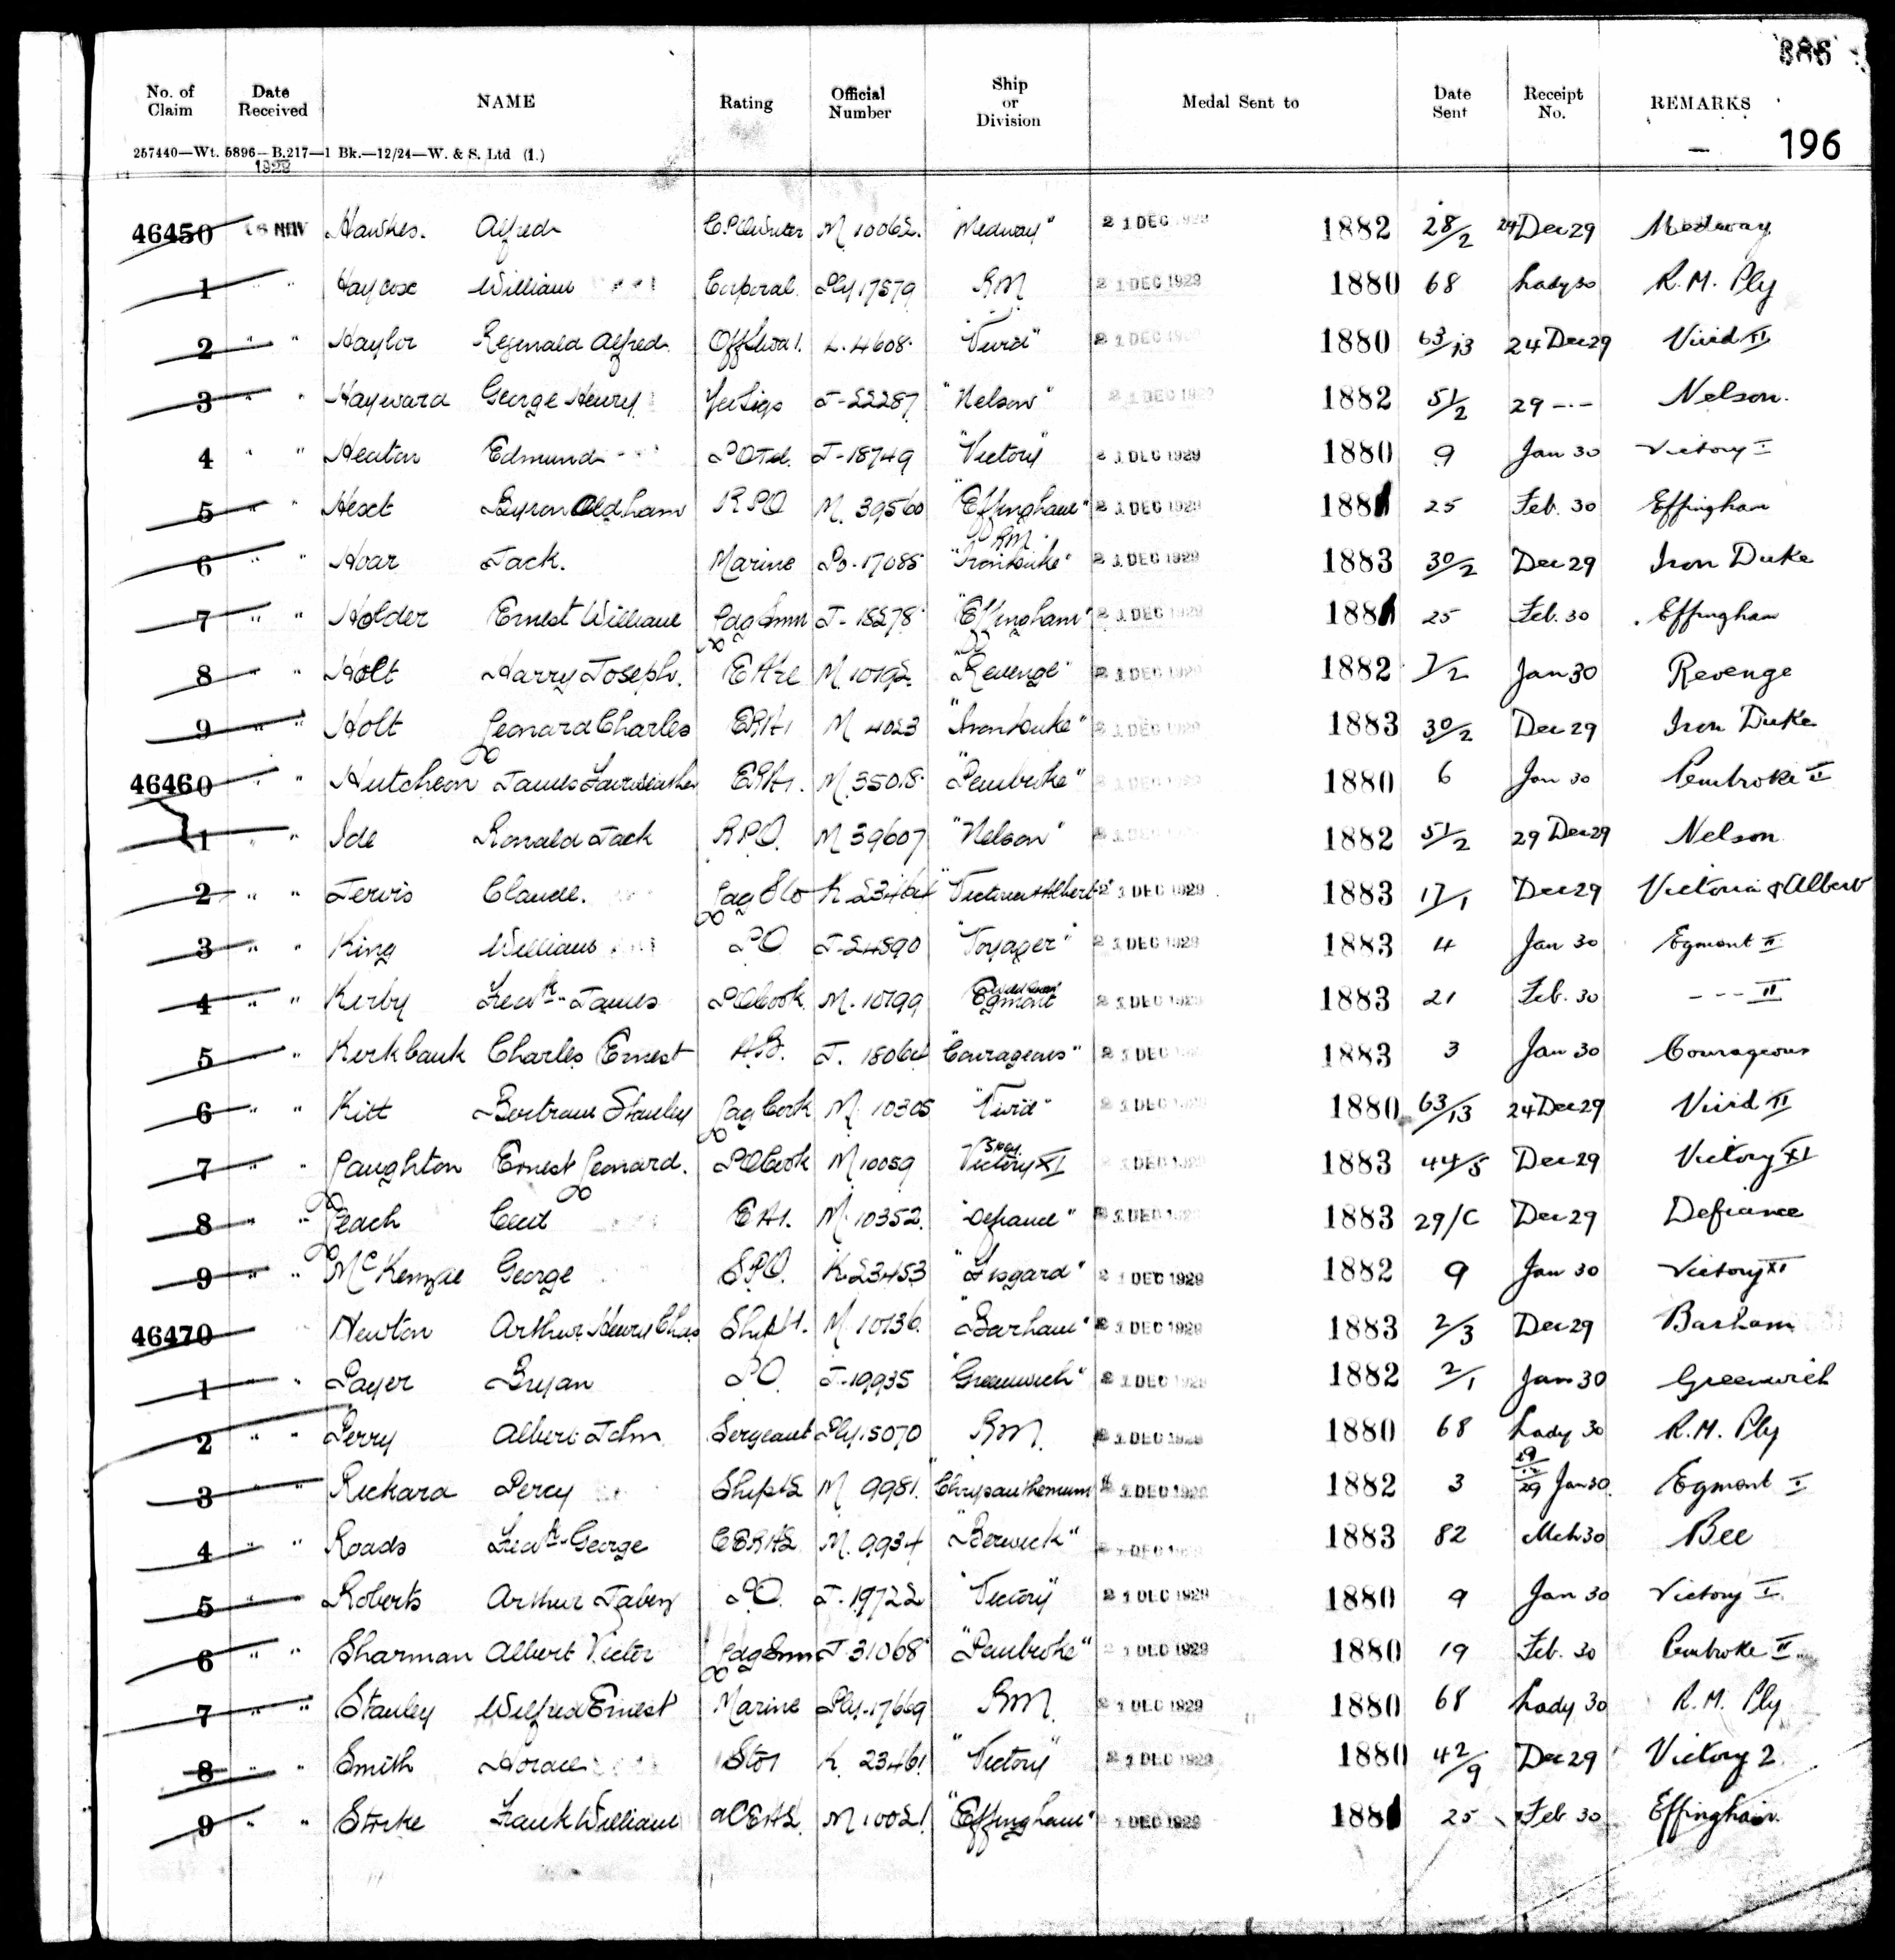 386
No. of Claim Date Received NAME Rating Official Number Ship or Division Medal Sent to Date Sent Receipt No. REMARKS
196
257440—Wt. 5896—B.217—1 Bk.—12/24—W. & S. Ltd (1.)
1929
46450 NOV Hawkes. Alfred M 10062. "Medway" 21 DEC 1929 1882 28/2 24 Dec 29 Medway
1 " " Haycox William Corporal. Ply 17579 RM 21 DEC 1929 1880 68 Lady 30 R. M. Ply
2 " " Haylor Reginald Alfred. L. 4608. "Vivid" 21 DEC 1929 1880 63/13 24 Dec 29 Vivid II
3 " " Hayward George Henry Yeo Sigs J-22287 "Nelson" 21 DEC 1929 1882 51/2 29 -·- Nelson.
4 " " Heaton Edmund PO Tel. J-18749 "Victory" 21 DEC 1929 1880 9 Jan 30 Victory I
5 " " Hext Byron Oldham RPO M. 39560 "Effingham" 21 DEC 1929 1881 25 Feb. 30 Effingham
6 " " Hoar Jack. Marine Po-17085 RM "Iron Duke" 21 DEC 1929 1883 30/2 Dec 29 Iron Duke
7 " " Holder Ernest William Ldg Smn J-18278 "Effingham" 21 DEC 1929 1881 25 Feb. 30 Effingham
8 " " Holt Harry Joseph. M. 10792 "Revenge" 21 DEC 1929 1882 7/2 Jan 30 Revenge
9 " " Holt Leonard Charles ERA1 M 4023 "Iron Duke" 21 DEC 1929 1883 30/2 Dec 29 Iron Duke
46460 " " Hutcheon James Fairweather ERA1. M. 35018. "Pembroke" 21 DEC 1929 1880 6 Jan 30 Pembroke II
1 " " Ide Ronald Jack RPO. M 39607 "Nelson" 21 DEC 1929 1882 51/2 29 Dec 29 Nelson
2 " " Jervis Claude. Ldg Sto K 23464 "Victoria & Albert" 21 DEC 1929 1883 17/1 Dec 29 Victoria & Albert
3 " " King William PO J-24590 "Voyager" 21 DEC 1929 1883 4 Jan 30 Egmont II
4 " " Kerby Fredk. James PO Cook. M. 10799 Egmont 21 DEC 1929 1883 21 Feb. 30 - - - II
5 " " Kerkbank Charles Ernest A.B. J. 18064 "Courageous" 21 DEC 1929 1883 3 Jan 30 Courageous
6 " " Kitt Bertram Stanley Ldg Cook M. 10305 "Vivid" 21 DEC 1929 1880 63/13 24 Dec 29 Vivid II
7 " " Laughton Ernest Leonard. PO Cook M 10059 Victory XI 21 DEC 1929 1883 44/5 Dec 29 Victory XI
8 " " Leach Cecil EA1. M. 10352. "Defiance" 21 DEC 1929 1883 29/C Dec 29 Defiance
9 " " McKenzie George SPO. K. 23453 "Fisgard" 21 DEC 1929 1882 9 Jan 30 Victory XI
46470 Newton Arthur Henry Chas Shpt1. M. 10736. "Barham" 21 DEC 1929 1883 2/3 Dec 29 Barham
1 " " Payer Bryan PO. J-19935 "Greenwich" 21 DEC 1929 1882 2/1 Jan 30 Greenwich
2 " " Perry Albert John Sergeant Ply 15070 RM. 21 DEC 1929 1880 68 Lady 30 R. M. Ply
3 " " Rickard Percy Shpt2 M 9981. "Chrysanthemum" 21 DEC 1929 1882 3 29/12/29 Jan 30. Egmont I
4 " " Roads Fredk. George CERA2 M. 9934 "Berwick" 21 DEC 1929 1883 82 Mch 30 Bee
5 " " Roberts Arthur Jabez PO. J. 19722 "Victory" 21 DEC 1929 1880 9 Jan 30 Victory I.
6 " " Sharman Albert Victor Ldg Smn J 31068 "Pembroke" 21 DEC 1929 1880 19 Feb. 30 Pembroke II
7 " " Stanley Wilfred Ernest Marine Ply-17669 RM. 21 DEC 1929 1880 68 Lady 30 R. M. Ply
8 " " Smith Horace Sto1 K. 23461. "Victory" 21 DEC 1929 1880 42/9 Dec 29 Victory 2.
9 " " Strike Frank William M 10021. "Effingham" 21 DEC 1929 1881 25 Feb 30 Effingham.